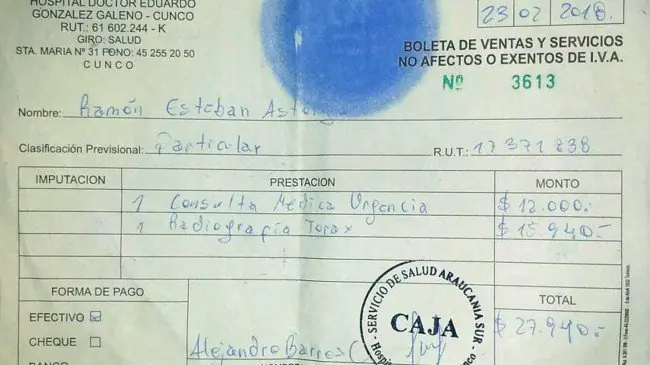 HOSPITAL DOCTOR EDUARDO
GONZALEZ GALENO - CUNCO
RUT.: 61 602.244 - K
GIRO: SALUD
STA. MARIA Nº 31 FONO: 45 255 20 50
CUNCO
23 02 2018.
BOLETA DE VENTAS Y SERVICIOS
NO AFECTOS O EXENTOS DE I.V.A.
Nº 3613
Nombre: Ramón Esteban
Clasificación Previsional: Particular R.U.T.: 17 371 838
IMPUTACION PRESTACION MONTO
1 Consulta Medica Urgencia $ 12.000.-
1 Radiografía Torax $ 15.940.-
FORMA DE PAGO TOTAL
EFECTIVO $ 27.940.-
CHEQUE
SERVICIO DE SALUD ARAUCANIA SUR
CAJA
Alejandro